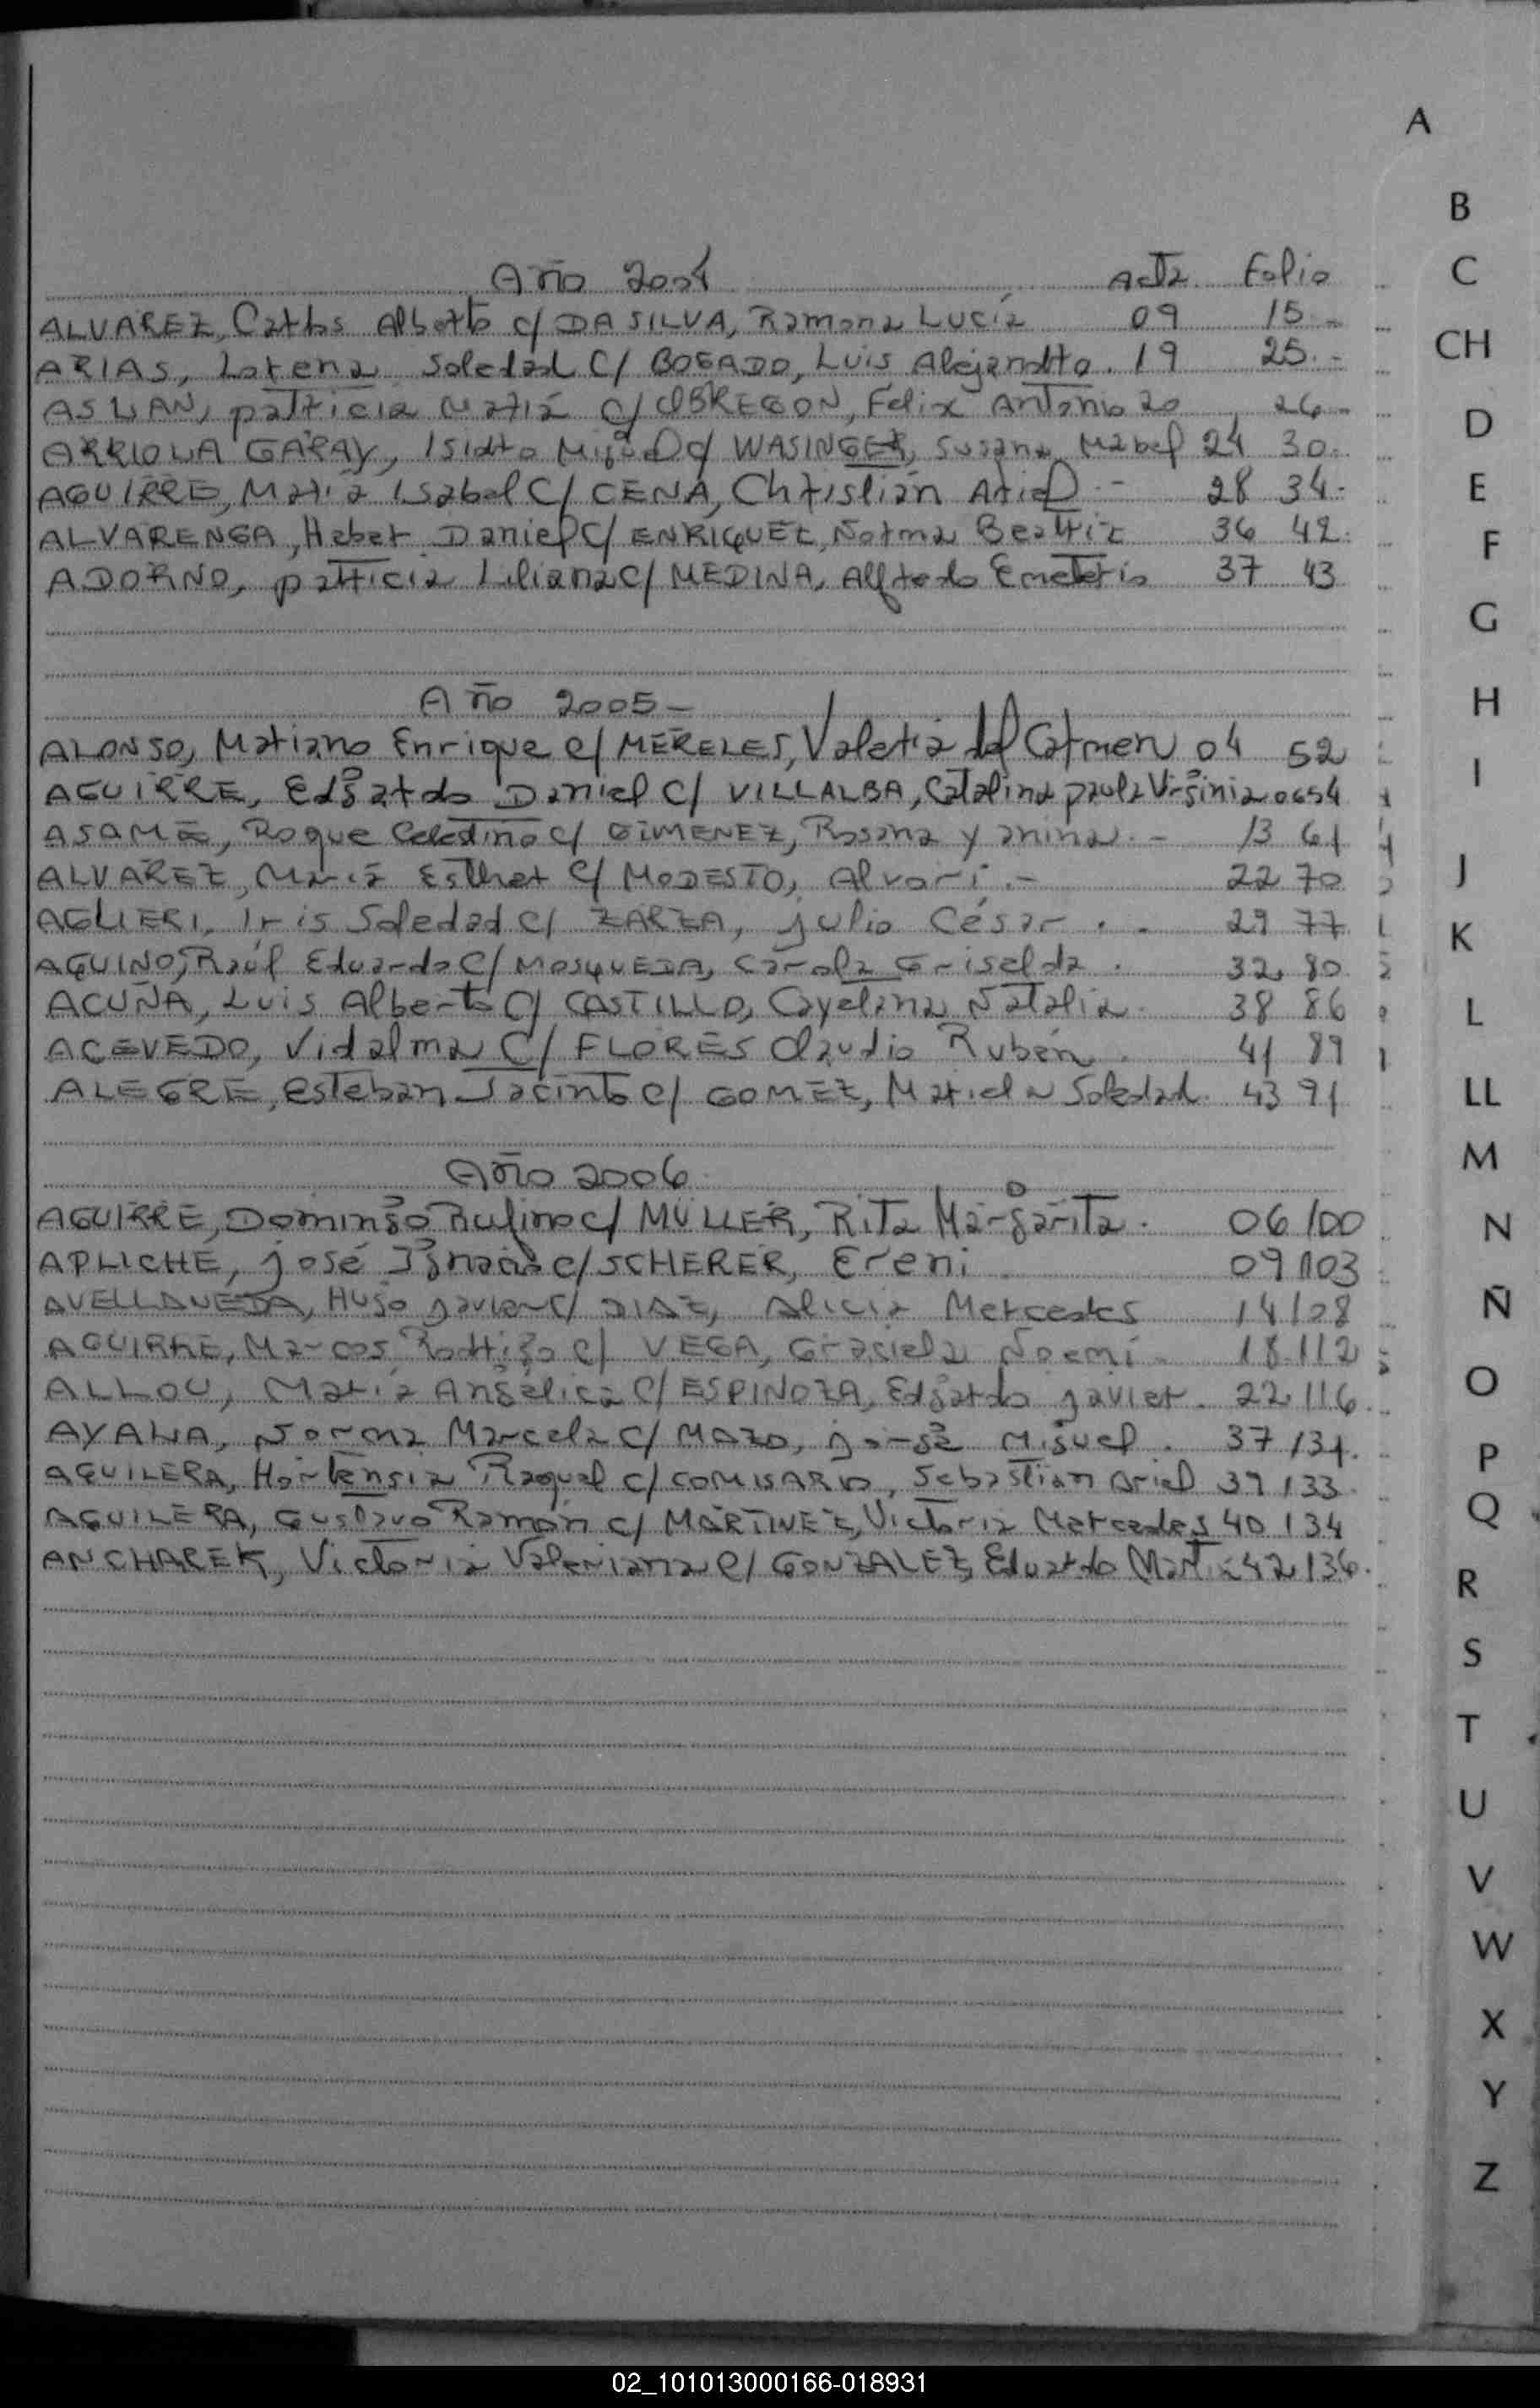 A
B
C
CH
D
E
F
G
H
I
J
K
L
LL
M
N
Ñ
O
P
Q
R
S
T
U
V
W
X
Y
Z
Año 2004 Acta Folio
ALVAREZ, Carlos Alberto c/ DA SILVA, Ramona Lucía 09 15.-
ARIAS, Lorena Soledad C/ BOGADO, Luis Alejandro. 19 25.-
ASLIAN, patricia María c/ OBREGON, Felix Antonio 20 26.-
ARRIOLA GARAY, Isidro Miguel c/ WASINGER, Susana Mabel 24 30.
AGUIRRE, María Isabel C/ CENA, Christian Ariel.- 28 34.
ALVARENGA, Heber Daniel C/ ENRIQUEZ, Norma Beatriz 36 42.
ADORNO, patricia Liliana C/ MEDINA, Alfredo Emeterio 37 43
Año 2005-
ALONSO, Mariano Enrique c/ MERELES, Valeria del Carmen 04 52
AGUIRRE, Edgardo Daniel C/ VILLALBA, Catalina paula Virginia 06 54
ASAME, Roque Celestino c/ GIMENEZ, Rosana yanina.- 13 61
ALVAREZ, María Esther C/ MODESTO, Alvori.- 22 70
AGLIERI, Iris Soledad c/ ZARZA, julio César.. 29 77
AQUINO, Raúl Eduardo C/ MOSQUEDA, Carola Griselda. 32 80
ACUÑA, Luis Alberto C/ CASTILLO, Cayelana Natalia. 38 86
ACEVEDO, Vidalma C/ FLORES Claudio Rubén. 41 89
ALEGRE, esteban Jacinto c/ GOMEZ, Mariela Soledad. 43 91
Año 2006
AGUIRRE, Domingo Rufino c/ MULLER, Rita Margarita. 06 100
APLICHE, josé Ignacio c/ SCHERER, Ereni 09 103
AVELLANEDA, Hugo javier c/ DIAZ, Alicia Mercedes 14 108
AGUIRRE, Marcos Rodrigo c/ VEGA, Graciela Noemí. 18 112
ALLOU, María Angélica C/ ESPINOZA, Edgardo javier. 22 116.
AYALA, Norma Marcela C/ MAZO, jorge Miguel. 37 131.
AGUILERA, Hortensia Raquel c/ COMISARIO, Sebastian Ariel 39 133.
AGUILERA, Gustavo Ramón c/ MARTINEZ, Victoria Mercedes 40 134
ANCHAREK, Victoria Valeriana c/ GONZALEZ, Eduardo 42 136.
02_101013000166-018931